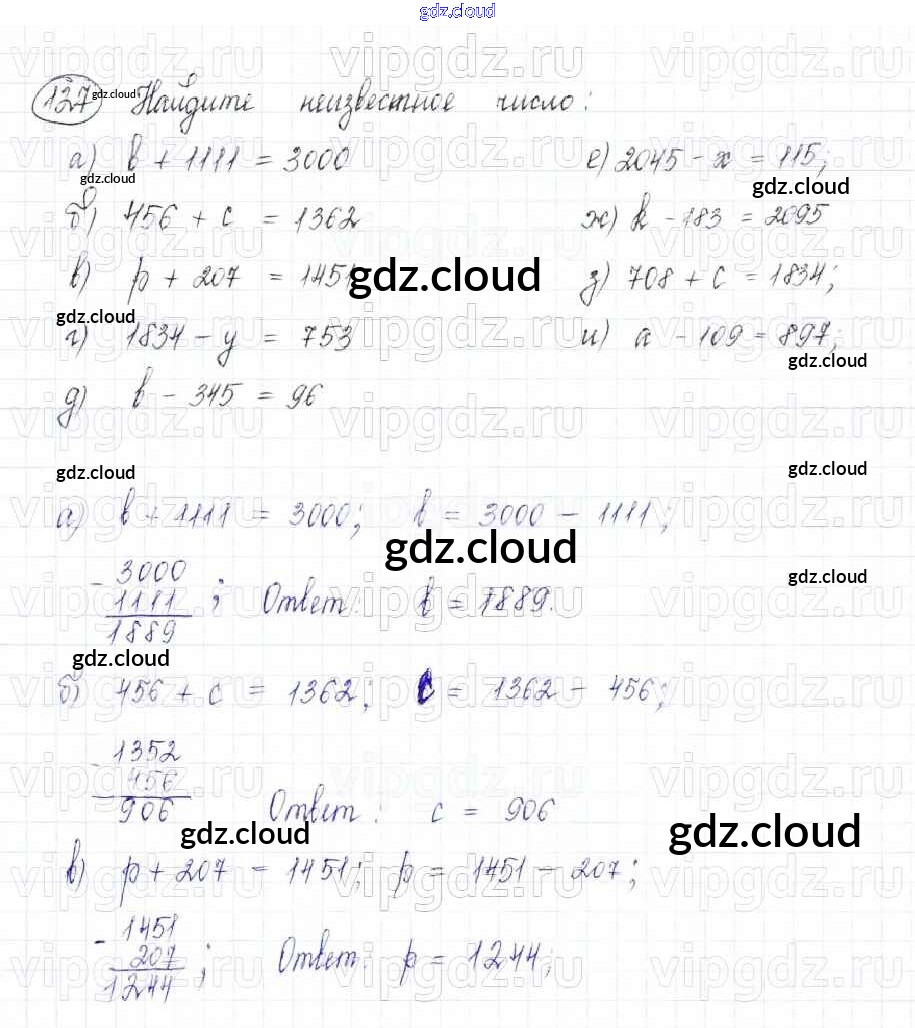 gdz.cloud
127 Найдите неизвестное число:
gdz.cloud
а) b + 1111 = 3000 е) 2045 - x = 115;
gdz.cloud gdz.cloud
б) 456 + c = 1362 ж) k - 183 = 2095
в) p + 207 = 1451 з) 708 + c = 1834;
gdz.cloud
gdz.cloud
г) 1834 - y = 753 и) a - 109 = 897;
gdz.cloud
д) b - 345 = 96
gdz.cloud gdz.cloud
а) b + 1111 = 3000; b = 3000 - 1111;
gdz.cloud
- 3000
1111 ; Ответ: b = 1889.
1889
gdz.cloud
gdz.cloud
б) 456 + c = 1362; c = 1362 - 456;
- 1352
456
906 Ответ: c = 906
gdz.cloud gdz.cloud
в) p + 207 = 1451; p = 1451 - 207;
- 1451
207 ; Ответ: p = 1244;
1244
vipgdz.ru